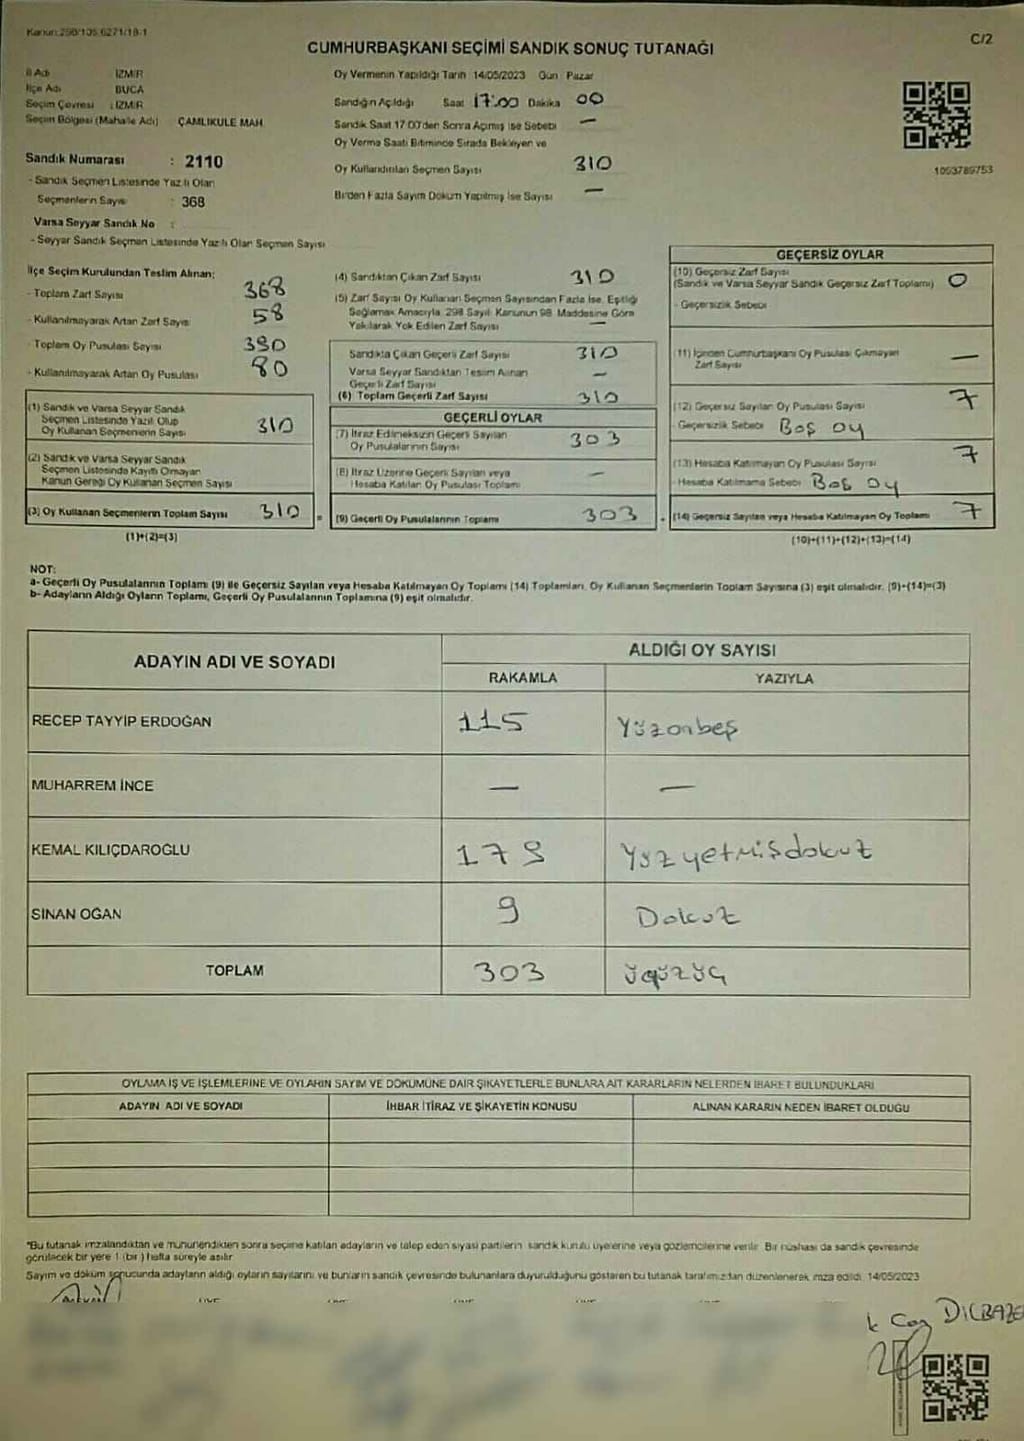 Kanun:298/105,6271/18-1
C/2
CUMHURBAŞKANI SEÇİMİ SANDIK SONUÇ TUTANAĞI
İl Adı İZMİR
İlçe Adı BUCA
Seçim Çevresi : İZMİR
Seçim Bölgesi (Mahalle Adı) ÇAMLIKULE MAH.
Sandık Numarası : 2110
- Sandık Seçmen Listesinde Yazılı Olan
Seçmenlerin Sayısı : 368
Varsa Seyyar Sandık No :
- Seyyar Sandık Seçmen Listesinde Yazılı Olan Seçmen Sayısı
Oy Vermenin Yapıldığı Tarih 14/05/2023 Gün Pazar
Sandığın Açıldığı Saat 17:00 Dakika 00
Sandık Saat 17.00'den Sonra Açılmış İse Sebebi —
Oy Verme Saati Bitiminde Sırada Bekleyen ve
Oy Kullandırılan Seçmen Sayısı 310
Birden Fazla Sayım Döküm Yapılmış İse Sayısı —
1093789753
İlçe Seçim Kurulundan Teslim Alınan;
- Toplam Zarf Sayısı 368
- Kullanılmayarak Artan Zarf Sayısı 58
- Toplam Oy Pusulası Sayısı 390
- Kullanılmayarak Artan Oy Pusulası 80
(1) Sandık ve Varsa Seyyar Sandık
Seçmen Listesinde Yazılı Olup
Oy Kullanan Seçmenlerin Sayısı 310
(2) Sandık ve Varsa Seyyar Sandık
Seçmen Listesinde Kayıtlı Olmayan
Kanun Gereği Oy Kullanan Seçmen Sayısı
(3) Oy Kullanan Seçmenlerin Toplam Sayısı 310
(1)+(2)=(3)
(4) Sandıktan Çıkan Zarf Sayısı 310
(5) Zarf Sayısı Oy Kullanan Seçmen Sayısından Fazla İse, Eşitliği
Sağlamak Amacıyla, 298 Sayılı Kanunun 98. Maddesine Göre
Yakılarak Yok Edilen Zarf Sayısı —
Sandıkta Çıkan Geçerli Zarf Sayısı 310
Varsa Seyyar Sandıktan Teslim Alınan
Geçerli Zarf Sayısı —
(6) Toplam Geçerli Zarf Sayısı 310
GEÇERLİ OYLAR
(7) İtiraz Edilmeksizin Geçerli Sayılan
Oy Pusulalarının Sayısı 303
(8) İtiraz Üzerine Geçerli Sayılan veya
Hesaba Katılan Oy Pusulası Toplamı —
(9) Geçerli Oy Pusulalarının Toplamı 303
GEÇERSİZ OYLAR
(10) Geçersiz Zarf Sayısı
(Sandık ve Varsa Seyyar Sandık Geçersiz Zarf Toplamı) 0
- Geçersizlik Sebebi
(11) İçinden Cumhurbaşkanı Oy Pusulası Çıkmayan
Zarf Sayısı —
(12) Geçersiz Sayılan Oy Pusulası Sayısı 7
- Geçersizlik Sebebi Boş oy
(13) Hesaba Katılmayan Oy Pusulası Sayısı 7
- Hesaba Katılmama Sebebi Boş oy
(14) Geçersiz Sayılan veya Hesaba Katılmayan Oy Toplamı 7
(10)+(11)+(12)+(13)=(14)
NOT:
a- Geçerli Oy Pusulalarının Toplamı (9) ile Geçersiz Sayılan veya Hesaba Katılmayan Oy Toplamı (14) Toplamları, Oy Kullanan Seçmenlerin Toplam Sayısına (3) eşit olmalıdır. (9)+(14)=(3)
b- Adayların Aldığı Oyların Toplamı, Geçerli Oy Pusulalarının Toplamına (9) eşit olmalıdır.
ADAYIN ADI VE SOYADI
ALDIĞI OY SAYISI
RAKAMLA YAZIYLA
RECEP TAYYİP ERDOĞAN 115 Yüzonbeş
MUHARREM İNCE — —
KEMAL KILIÇDAROĞLU 179 Yüzyetmişdokuz
SİNAN OĞAN 9 Dokuz
TOPLAM 303 üçyüzüç
OYLAMA İŞ VE İŞLEMLERİNE VE OYLARIN SAYIM VE DÖKÜMÜNE DAİR ŞİKAYETLERLE BUNLARA AİT KARARLARIN NELERDEN İBARET BULUNDUKLARI
ADAYIN ADI VE SOYADI İHBAR İTİRAZ VE ŞİKAYETİN KONUSU ALINAN KARARIN NEDEN İBARET OLDUĞU
*Bu tutanak imzalandıktan ve mühürlendikten sonra seçime katılan adayların ve talep eden siyasi partilerin sandık kurulu üyelerine veya gözlemcilerine verilir. Bir nüshası da sandık çevresinde
görülecek bir yere 1 (bir) hafta süreyle asılır.
Sayım ve döküm sonucunda adayların aldığı oyların sayılarını ve bunların sandık çevresinde bulunanlara duyurulduğunu gösteren bu tutanak tarafımızdan düzenlenerek imza edildi. 14/05/2023